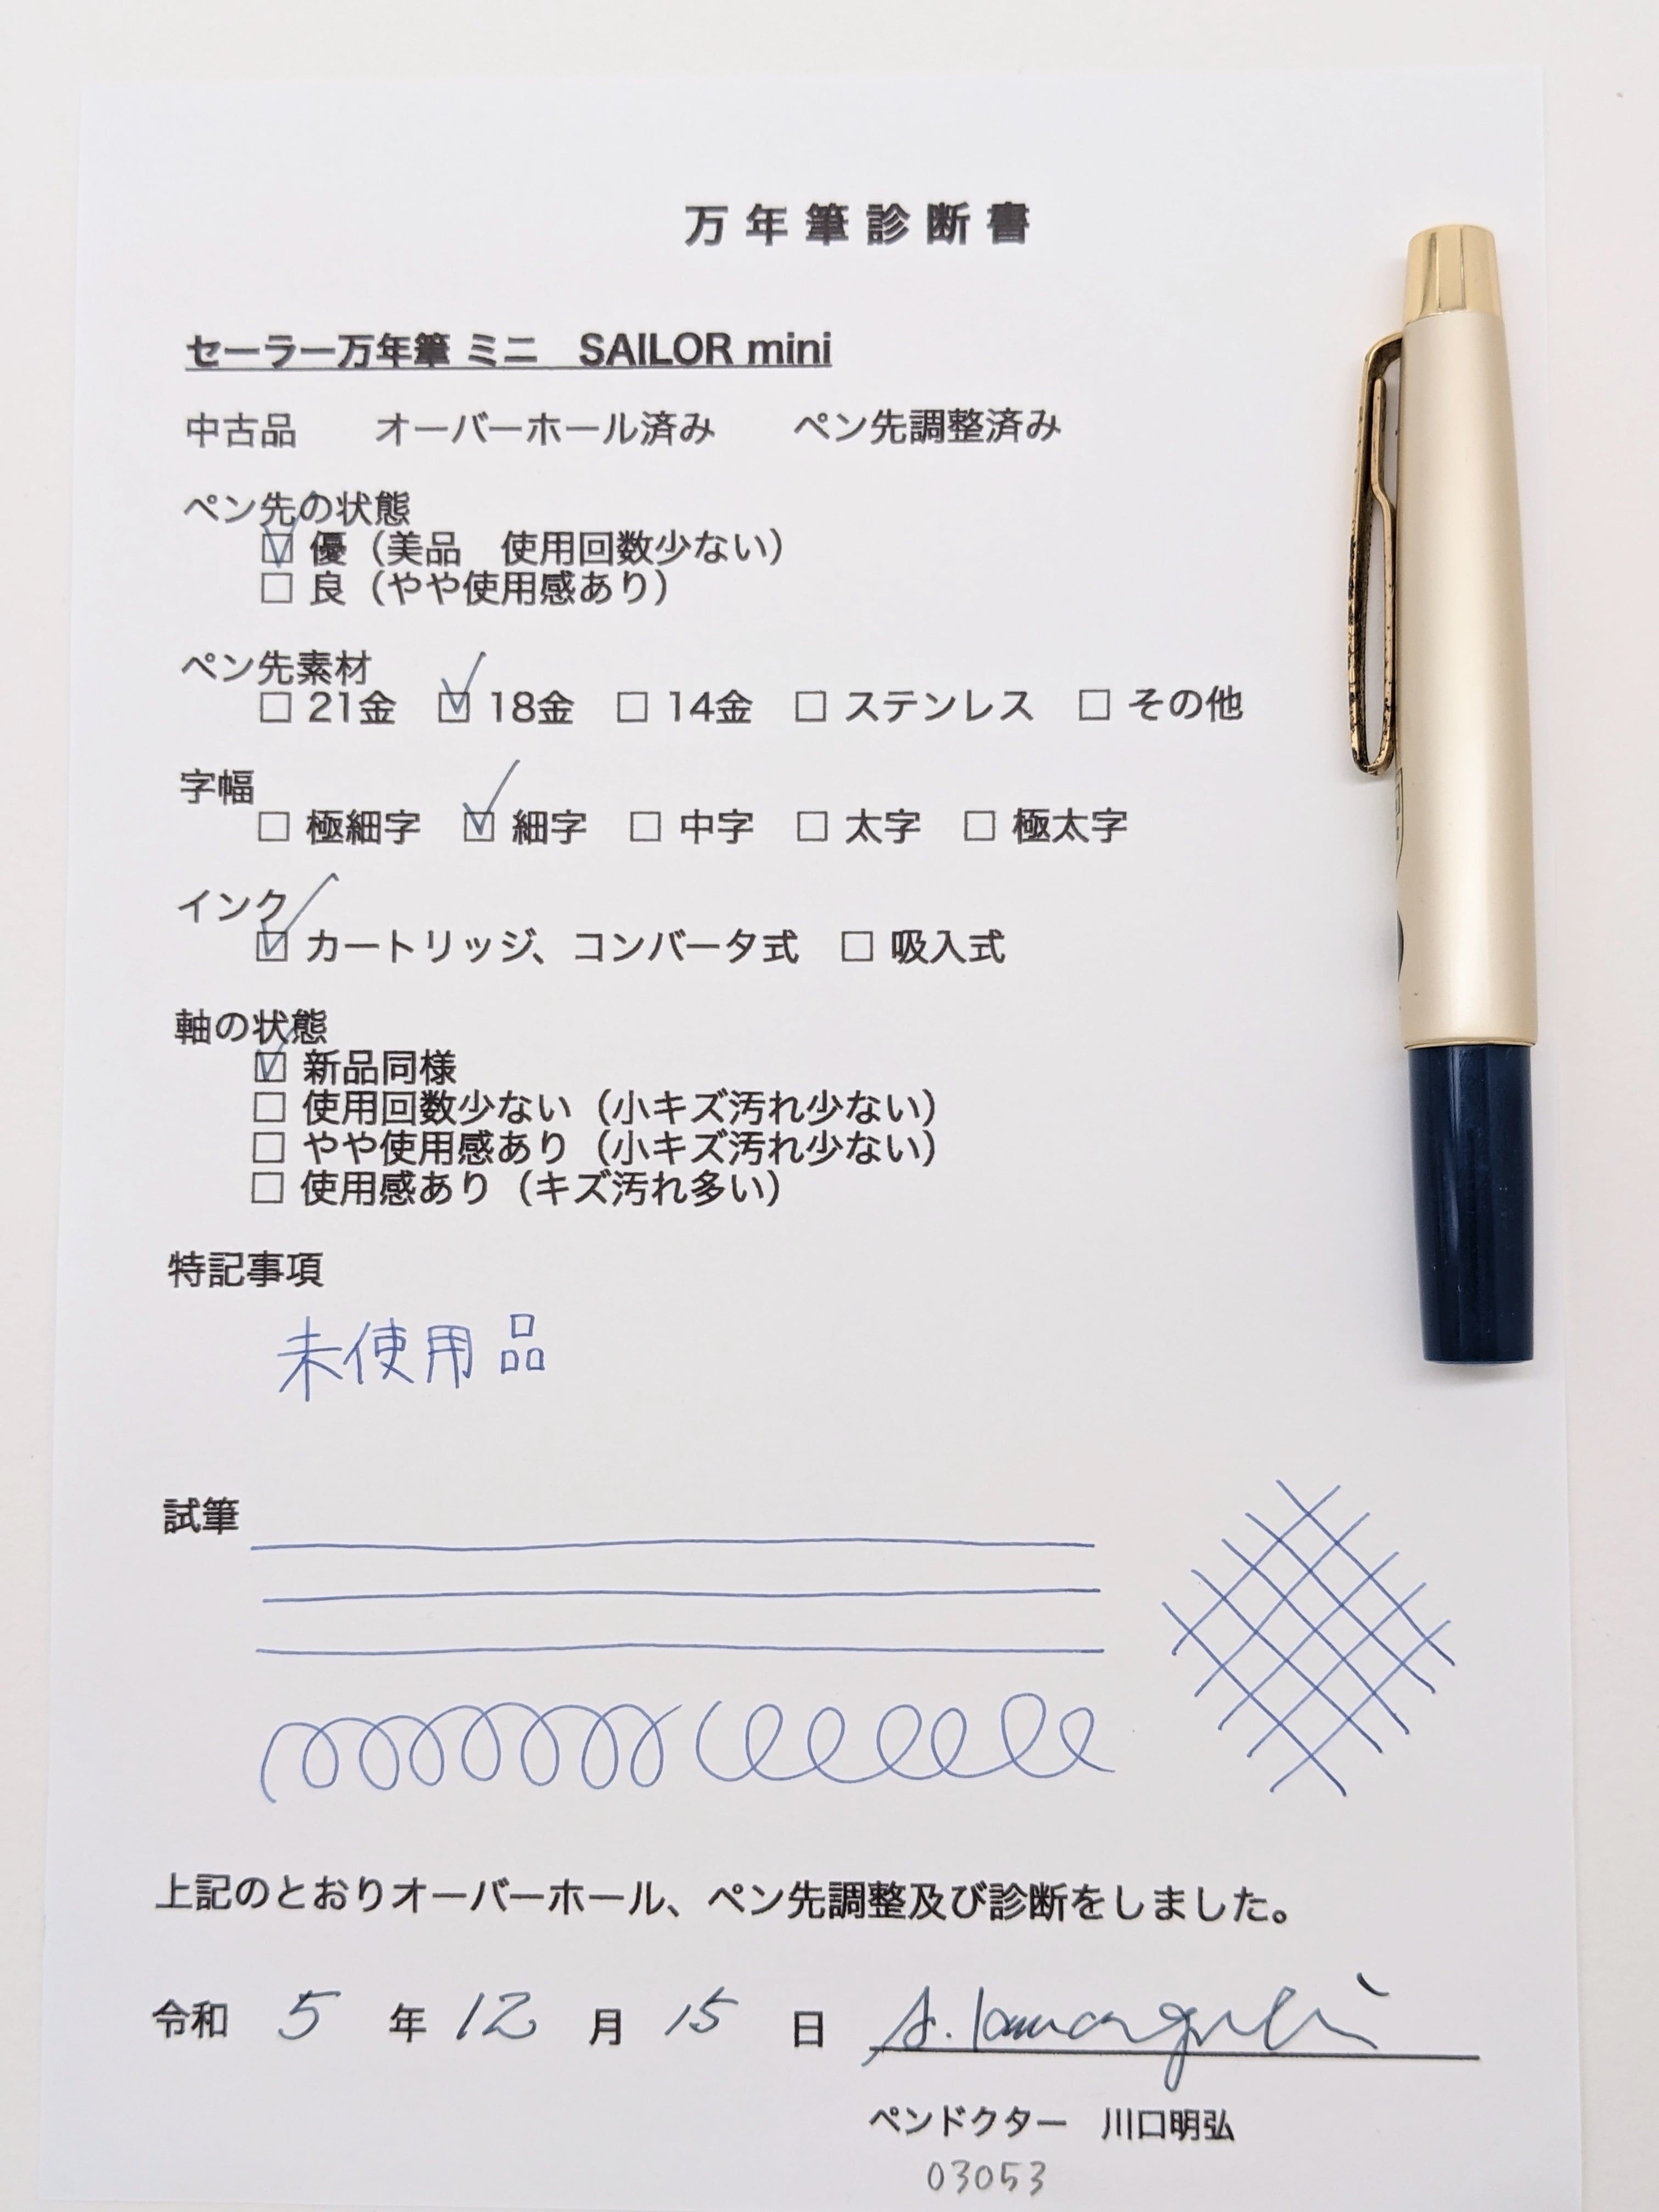 万年筆診断書
セーラー万年筆 ミニ　SAILOR mini
中古品　オーバーホール済み　ペン先調整済み
ペン先の状態
☑ 優（美品　使用回数少ない）
☐ 良（やや使用感あり）
ペン先素材
☐ 21金　☑ 18金　☐ 14金　☐ ステンレス　☐ その他
字幅
☐ 極細字　☑ 細字　☐ 中字　☐ 太字　☐ 極太字
インク
☑ カートリッジ、コンバータ式　☐ 吸入式
軸の状態
☑ 新品同様
☐ 使用回数少ない（小キズ汚れ少ない）
☐ やや使用感あり（小キズ汚れ少ない）
☐ 使用感あり（キズ汚れ多い）
特記事項
未使用品
試筆
上記のとおりオーバーホール、ペン先調整及び診断をしました。
令和 5 年 12 月 15 日
ペンドクター　川口明弘
03053